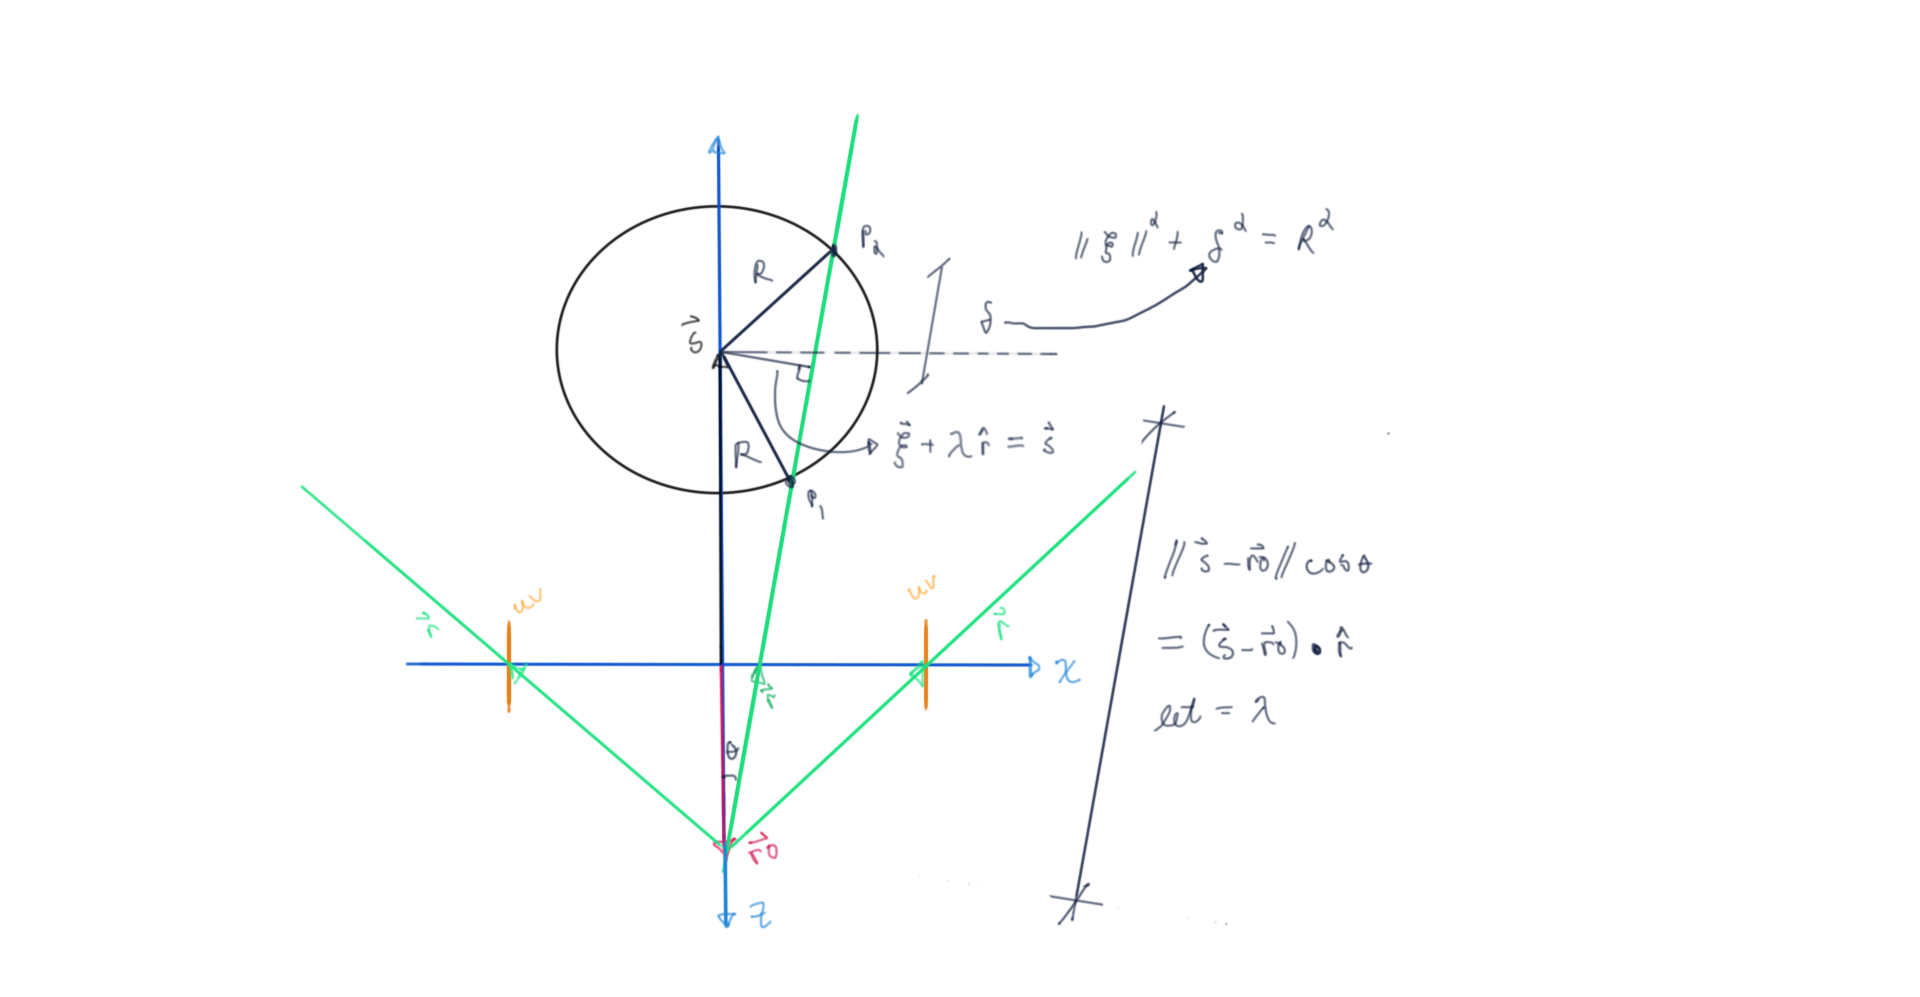 P₂
‖ξ‖² + δ² = R²
R
s⃗
δ
ξ⃗ + λ r̂ = s⃗
R
P₁
‖s⃗ - r⃗o‖ cos θ
= (s⃗ - r⃗o) • r̂
let = λ
uv
uv
r⃗
r⃗
x
r⃗
θ
r⃗o
z